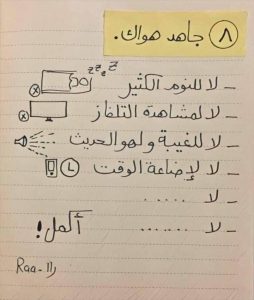 ٨ جاهد هواك.
- لا للنوم الكثير
- لا لمشاهدة التلفاز
- لا للغيبة ولهو الحديث
- لا لإضاعة الوقت
- لا .....
- لا ...... أكمل!
Raa-راا